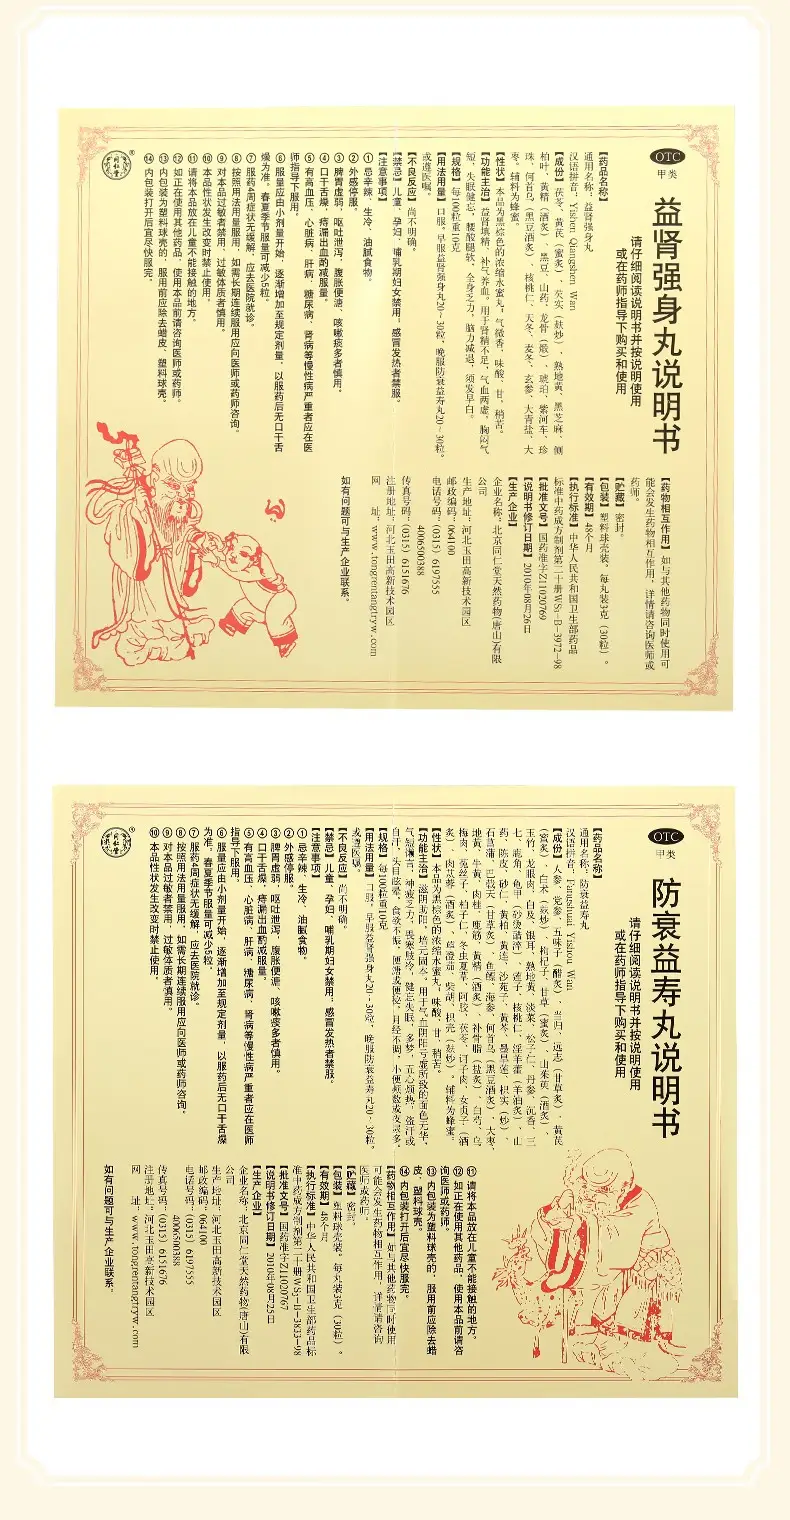 OTC
甲类
益肾强身丸说明书
请仔细阅读说明书并按说明使用
或在药师指导下购买和使用
【药品名称】
通用名称:益肾强身丸
汉语拼音:Yishen Qiangshen Wan
【成份】茯苓、黄芪(蜜炙)、芡实(麸炒)、熟地黄、黑芝麻、侧
柏叶、黄精(酒炙)、黑豆、山药、龙骨(煅)、琥珀、紫河车、珍
珠、何首乌(黑豆酒炙)、核桃仁、天冬、麦冬、玄参、大青盐、大
枣。辅料为蜂蜜。
【性状】本品为黑棕色的浓缩水蜜丸;气微香,味酸、甘、稍苦。
【功能主治】益肾填精,补气养血。用于肾精不足,气血两虚,胸闷气
短,失眠健忘,腰酸腿软,全身乏力,脑力减退,须发早白。
【规格】每100粒重10克
【用法用量】口服。早服益肾强身丸20~30粒,晚服防衰益寿丸20~30粒。
或遵医嘱。
【不良反应】尚不明确。
【禁忌】儿童、孕妇、哺乳期妇女禁用;感冒发热者禁服。
【注意事项】
①忌辛辣、生冷、油腻食物。
②外感停服。
③脾胃虚弱,呕吐泄泻,腹胀便溏、咳嗽痰多者慎用。
④口干舌燥,痔漏出血酌减服量。
⑤有高血压、心脏病、肝病、糖尿病、肾病等慢性病严重者应在医
师指导下服用。
⑥服量应由小剂量开始,逐渐增加至规定剂量,以服药后无口干舌
燥为准。春夏季节服量可减少5粒。
⑦服药4周症状无缓解,应去医院就诊。
⑧按照用法用量服用,如需长期连续服用应向医师或药师咨询。
⑨对本品过敏者禁用,过敏体质者慎用。
⑩本品性状发生改变时禁止使用。
⑪请将本品放在儿童不能接触的地方。
⑫如正在使用其他药品,使用本品前请咨询医师或药师。
⑬内包装为塑料球壳的,服用前应除去蜡皮、塑料球壳。
⑭内包装打开后宜尽快服完。
同仁堂
®
【药物相互作用】如与其他药物同时使用可
能会发生药物相互作用,详情请咨询医师或
药师。
【贮藏】密封。
【包装】塑料球壳装,每丸装3克(30粒)。
【有效期】48个月
【执行标准】中华人民共和国卫生部药品
标准中药成方制剂第二十册WS₃-B-3972-98
【批准文号】国药准字Z11020769
【说明书修订日期】2010年08月26日
【生产企业】
企业名称:北京同仁堂天然药物(唐山)有限
公司
生产地址:河北玉田高新技术园区
邮政编码:064100
电话号码:(0315)6197555
4006500388
传真号码:(0315)6151676
注册地址:河北玉田高新技术园区
网 址:www.tongrentangtryw.com
如有问题可与生产企业联系。
OTC
甲类
防衰益寿丸说明书
请仔细阅读说明书并按说明使用
或在药师指导下购买和使用
【药品名称】
通用名称:防衰益寿丸
汉语拼音:Fangshuai Yishou Wan
【成份】人参、党参、五味子(醋炙)、当归、远志(甘草炙)、黄芪
(蜜炙)、白术(麸炒)、枸杞子、甘草(蜜炙)、山茱萸(酒炙)、
玉竹、龙眼肉、白及、银耳、熟地黄、淡菜、松子仁、丹参、沉香、三
七、鹿角、龟甲(砂烫醋淬)、莲子、核桃仁、淫羊藿(羊油炙)、山
药、陈皮、砂仁、黄柏、黄连、沙苑子、黄芩、墨旱莲、枳实(炒)、
石菖蒲、巴戟天(甘草炙)、鱼鳔、海参、何首乌(黑豆酒炙)、大枣、
地黄、牛黄、肉桂、鹿筋、黄精(酒炙)、补骨脂(盐炙)、白芍、乌
梅肉、菟丝子、柏子仁、冬虫夏草、阿胶、茯苓、诃子肉、女贞子(酒
炙)、肉苁蓉(酒炙)、荜澄茄、柴胡、枳壳(麸炒)。辅料为蜂蜜。
【性状】本品为黑棕色的浓缩水蜜丸,味酸、甘、稍苦。
【功能主治】滋阴助阳,培元固本。用于气血阴阳亏虚所致的面色无华,
气短懒言,神疲乏力,畏寒肢冷,健忘失眠,多梦,五心烦热,盗汗或
自汗,头目眩晕,食欲不振,便溏或便秘,月经不调,小便频数或夜尿多。
【规格】每100粒重10克
【用法用量】口服。早服益肾强身丸20~30粒,晚服防衰益寿丸20~30粒。
或遵医嘱。
【不良反应】尚不明确。
【禁忌】儿童、孕妇、哺乳期妇女禁用;感冒发热者禁服。
【注意事项】
①忌辛辣、生冷、油腻食物。
②外感停服。
③脾胃虚弱,呕吐泄泻,腹胀便溏、咳嗽痰多者慎用。
④口干舌燥,痔漏出血酌减服量。
⑤有高血压、心脏病、肝病、糖尿病、肾病等慢性病严重者应在医师
指导下服用。
⑥服量应由小剂量开始,逐渐增加至规定剂量,以服药后无口干舌燥
为准。春夏季节服量可减少5粒。
⑦服药4周症状无缓解,应去医院就诊。
⑧按照用法用量服用,如需长期连续服用应向医师或药师咨询。
⑨对本品过敏者禁用,过敏体质者慎用。
⑩本品性状发生改变时禁止使用。
同仁堂
®
⑪请将本品放在儿童不能接触的地方。
⑫如正在使用其他药品,使用本品前请咨
询医师或药师。
⑬内包装为塑料球壳的,服用前应除去蜡
皮、塑料球壳。
⑭内包装打开后宜尽快服完。
【药物相互作用】如与其他药物同时使用
可能会发生药物相互作用,详情请咨询
医师或药师。
【贮藏】密封。
【包装】塑料球壳装,每丸装3克(30粒)。
【有效期】48个月
【执行标准】中华人民共和国卫生部药品标
准中药成方制剂第二十册WS₃-B-3833-98
【批准文号】国药准字Z11020767
【说明书修订日期】2010年08月25日
【生产企业】
企业名称:北京同仁堂天然药物(唐山)有限
公司
生产地址:河北玉田高新技术园区
邮政编码:064100
电话号码:(0315)6197555
4006500388
传真号码:(0315)6151676
注册地址:河北玉田高新技术园区
网 址:www.tongrentangtryw.com
如有问题可与生产企业联系。